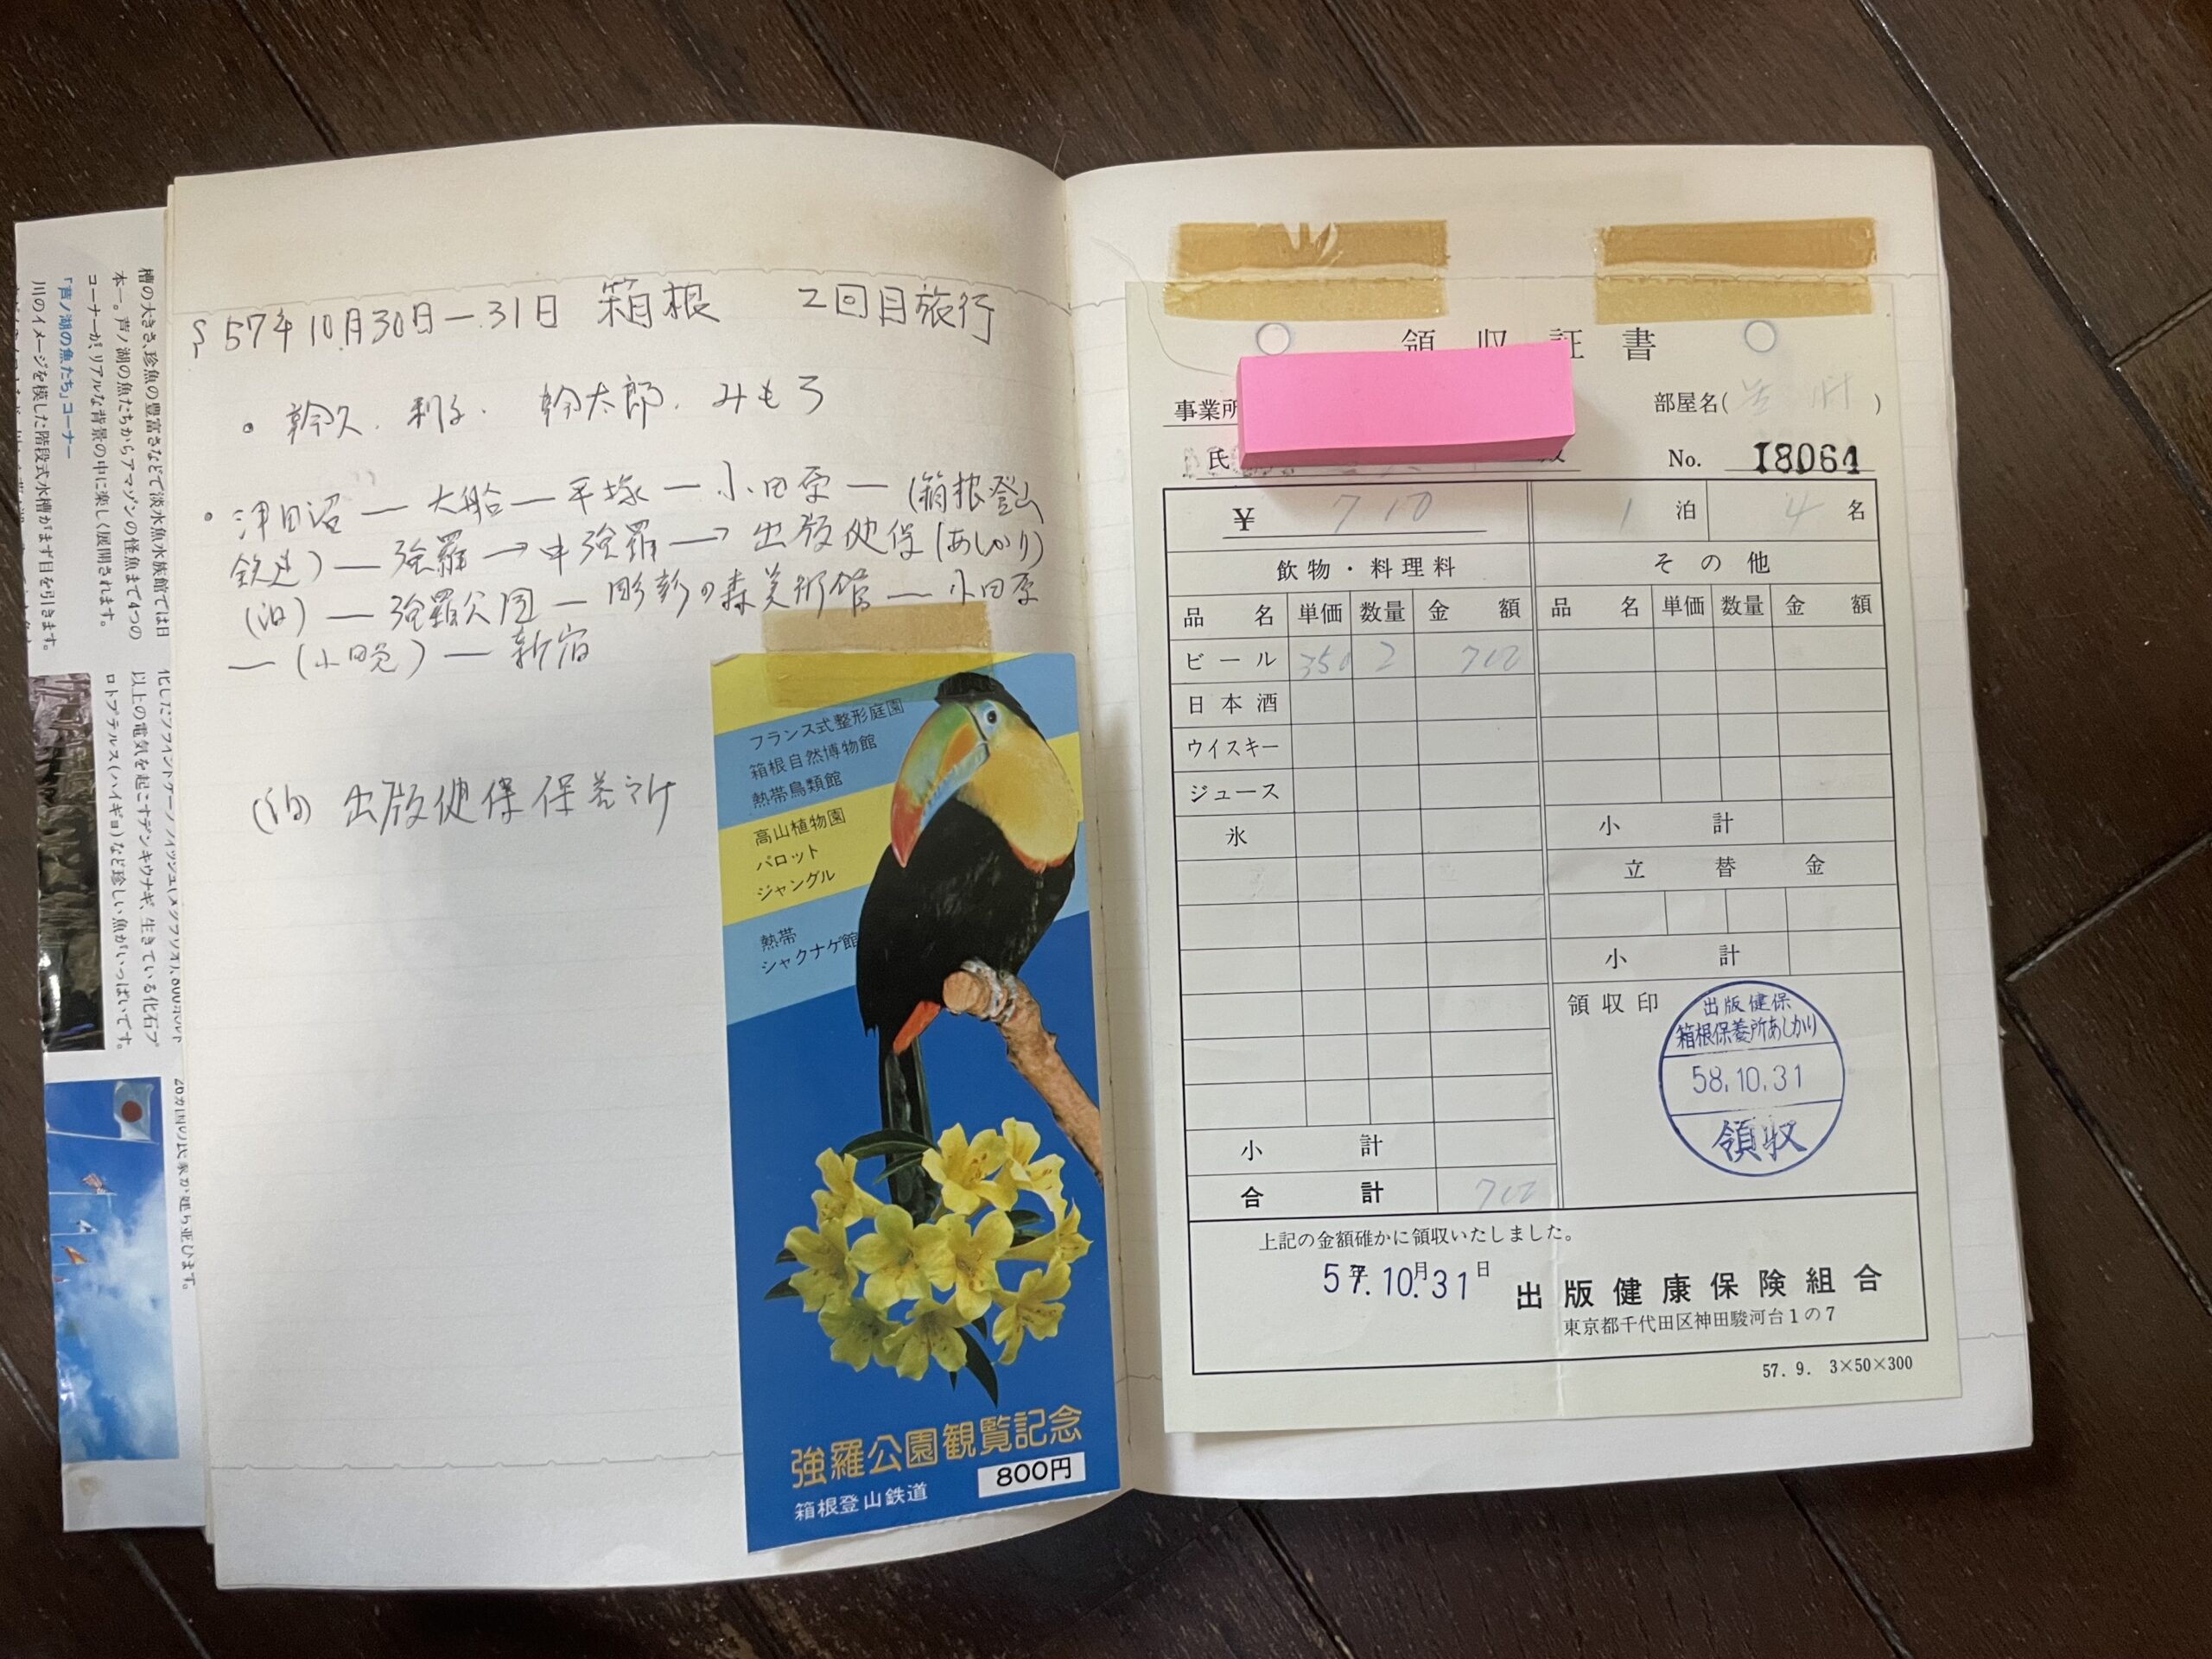 槽の大きさ、珍魚の豊富さなどで淡水魚水族館では日
本一。芦ノ湖の魚たちからアマゾンの怪魚まで4つの
コーナーが、リアルな背景の中に楽しく展開されます。
「芦ノ湖の魚たち」コーナー
川のイメージを模した階段式水槽がまず目を引きます。
以上の電気を起こすデンキウナギ、生きている化石プ
ロトプテルス(ハイギョ)など珍しい魚がいっぱいです。
S57年10月30日―31日 箱根 2回目旅行
• 幹久. 利子. 幹太郎. みもろ
• 津田沼 ― 大船 ― 平塚 ― 小田原 ― (箱根登山
鉄道) ― 強羅 → 中強羅 → 出版健保(あしかり)
(泊) ― 強羅公園 ― 彫刻の森美術館 ― 小田原
― (小田急) ― 新宿
(泊) 出版健保保養所
フランス式整形庭園
箱根自然博物館
熱帯鳥類館
高山植物園
パロット
ジャングル
熱帯
シャクナゲ館
強羅公園観覧記念
800円
箱根登山鉄道
領収証書
事業所
部屋名( )
氏
No. 18064
¥ 710 1 泊 4 名
飲物・料理料 その他
品名 単価 数量 金額 品名 単価 数量 金額
ビール 350 2 700
日本酒
ウイスキー
ジュース
氷
小計
立替金
小計
領収印
出版健保
箱根保養所あしかり
58.10.31
領収
小計
合計 700
上記の金額確かに領収いたしました。
57年.10月.31日 出版健康保険組合
東京都千代田区神田駿河台1の7
57. 9. 3×50×300